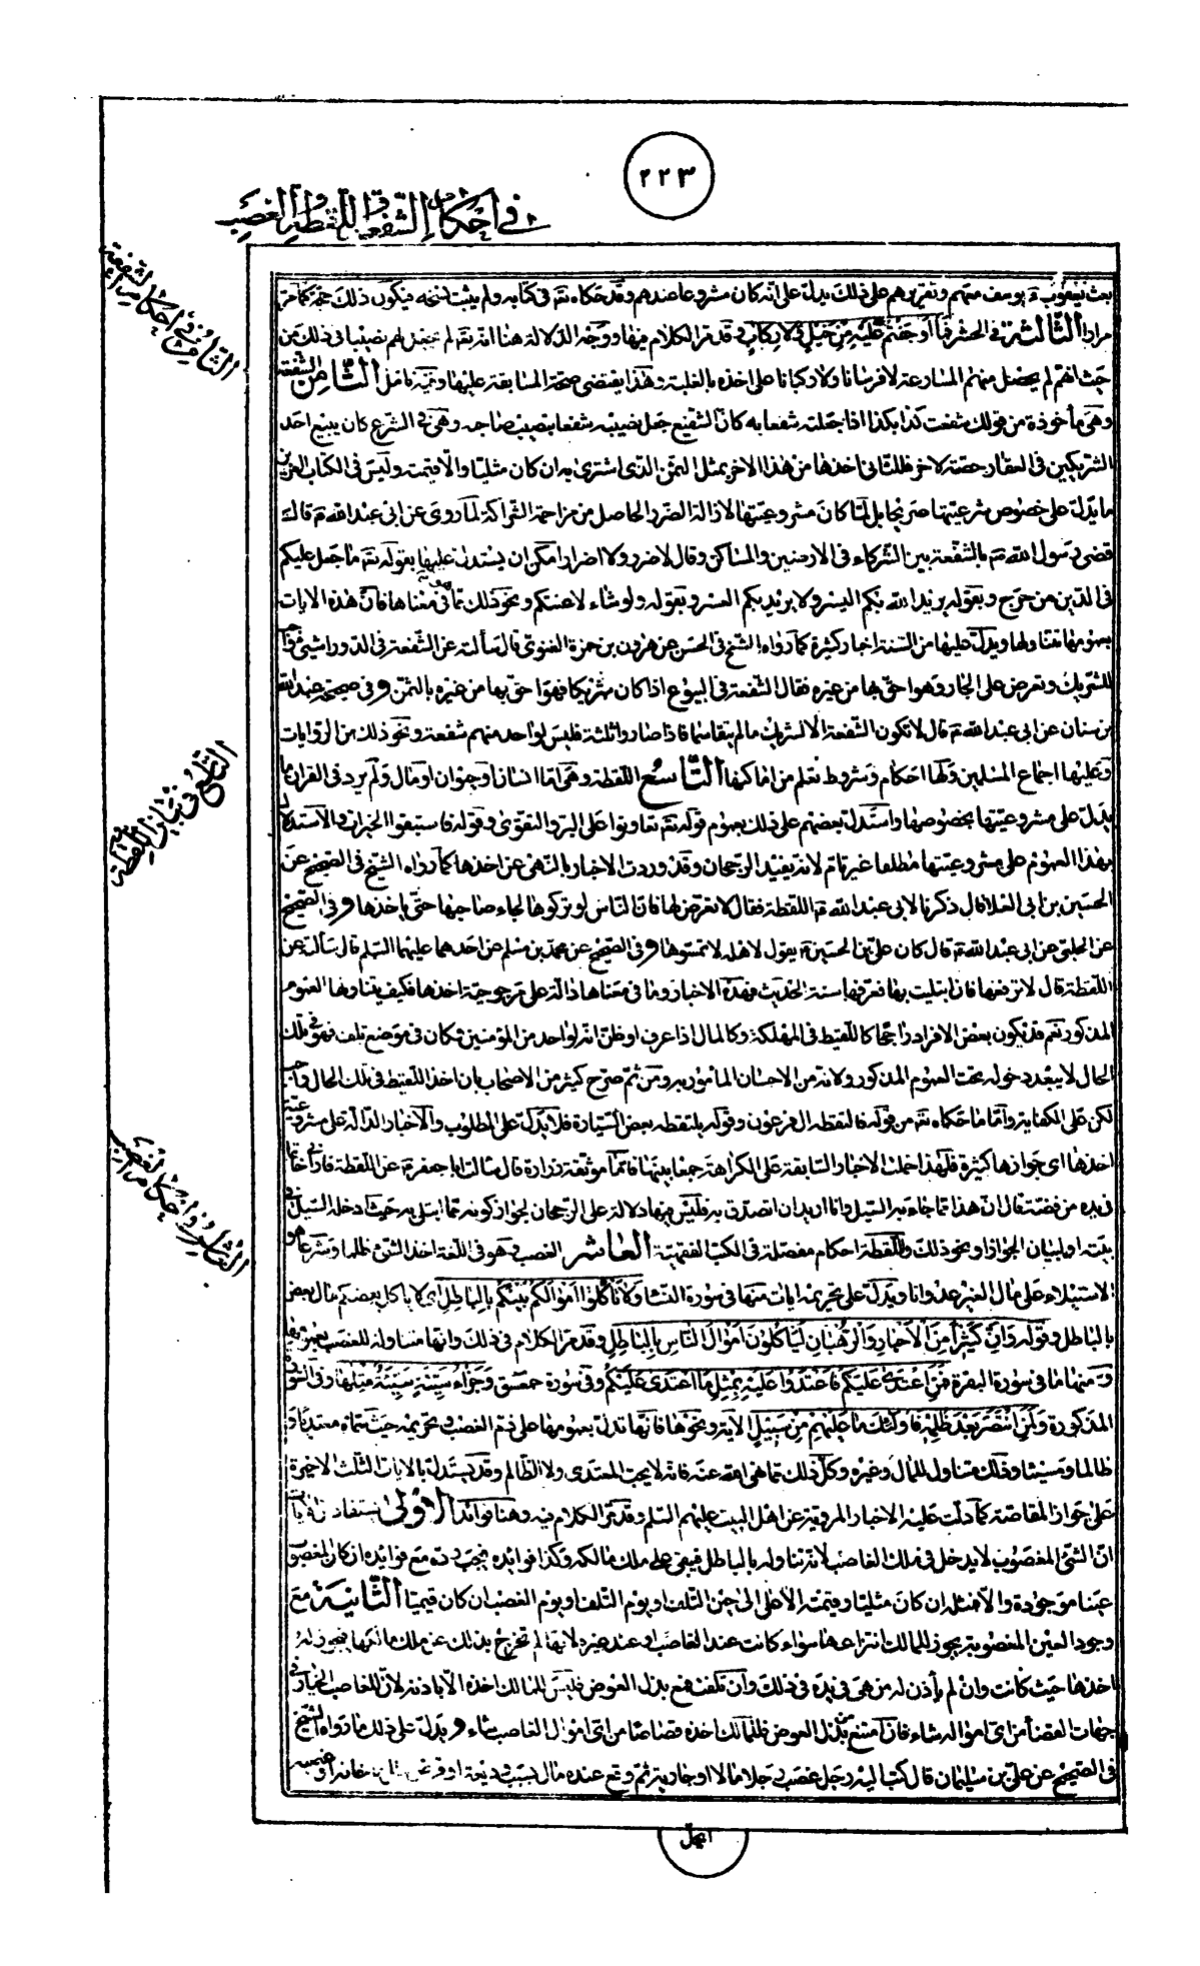 ٢٢٣
في أحكام الشفعة واللقطة والغصب
الثامن في أحكام الشفعة
بعث يعقوب ويوسف منهم وتقريرهم على ذلك يدل على أنه كان مشروعا عندهم وقد حكاه تعالى في كتابه ولم يثبت نسخه فيكون ذلك حجة كما مر
مرارا الثالثة في الحشر فما أوجفتم عليه من خيل ولا ركاب وقد مر الكلام فيها ووجه الدلالة هنا انه تعالى لم يجعل لهم نصيبا في ذلك من
حيث انهم لم يحصل منهم المسارعة لا فرسانا ولا ركبانا على اخذه بالغلبة وهذا يقتضي صحة المسابقة عليها وفيه تامل الثامن الشفعة
وهي مأخوذة من قولك شفعت كذا بكذا اذا جعلته شفعا به كان الشفيع جعل نصيبه شفعا بنصيب صاحبه وهي في الشرع كان يبيع احد
الشريكين في العقار حصته لاخر فللثاني اخذها من هذا الاخر بمثل الثمن الذي اشترى به ان كان مثليا والا قيمته وليس في الكتاب العزيز
ما يدل على خصوص شرعيتها صريحا بل لما كان مشروعيتها لازالة الضرر الحاصل من مزاحمة الشراكة لما روى عن ابي عبد الله ع قال
قضى رسول الله ص بالشفعة بين الشركاء في الارضين والمساكن وقال لا ضرر ولا اضرار امكن ان يستدل عليها بقوله تعالى ما جعل عليكم
في الدين من حرج وبقوله يريد الله بكم اليسر ولا يريد بكم العسر وبقوله ولو شاء لاعنتكم ونحو ذلك مما في معناها فان هذه الايات
بعمومها تتناولها ويدل عليها من السنة اخبار كثيرة كما رواه الشيخ في الحسن عن هرون بن حمزة الغنوي قال سألته عن الشفعة في الدور اشيء واجب
للشريك وتعرض على الجار وهو احق بها من غيره فقال الشفعة في البيوع اذا كان شريكا فهو احق بها من غيره بالثمن وفي صحيحة عبد الله
بن سنان عن ابي عبد الله ع قال لا تكون الشفعة الا لشريك ما لم يتقاسما فاذا صاروا ثلثة فليس لواحد منهم شفعة ونحو ذلك من الروايات
وعليها اجماع المسلمين ولها احكام وشروط تعلم من اماكنها التاسع اللقطة وهي اما انسان او حيوان او مال ولم يرد في القران ما
التاسع في
يدل على مشروعيتها بخصوصها واستدل بعضهم على ذلك بعموم قوله تعالى تعاونوا على البر والتقوى وقوله فاستبقوا الخيرات والاستدلال
بهذا العموم على مشروعيتها مطلقا غير تام لانه يفيد الرجحان وقد وردت الاخبار بالنهي عن اخذها كما رواه الشيخ في الصحيح عن
الحسين بن ابي العلا قال ذكرنا لابي عبد الله ع اللقطة فقال لا تعرض لها فان الناس لو تركوها لجاء صاحبها حتى يأخذها وفي الصحيح
عن الحلبي عن ابي عبد الله ع قال كان علي بن الحسين ع يقول لاهله لا تمسوها وفي الصحيح عن محمد بن مسلم عن احدهما عليهما السلم قال سألته عن
اللقطة قال لا ترفعها فان ابتليت بها فعرفها سنة الحديث فهذه الاخبار وما في معناها دالة على مرجوحية اخذها فكيف يتناولها العموم
المذكور نعم قد يكون بعض الافراد راجحا كاللقيط في المهلكة وكالمال اذا عرف او ظن انه لواحد من المؤمنين وكان في موضع تلف فهو في تلك
الحال لا يبعد دخوله تحت العموم المذكور ولانه من الاحسان المأمور به ومن ثم صرح كثير من الاصحاب بان اخذ اللقيط في تلك الحال واجب
لكن على الكفاية واما ما حكاه تعالى من قوله فالتقطه ال فرعون وقوله يلتقطه بعض السيارة فلا يدل على المطلوب والاخبار الدالة على مشروعية
اخذها اى جوازها كثيرة فلهذا حملت الاخبار السابقة على الكراهة جمعا بينها فاما موثقة زرارة قال سالت ابا جعفر ع عن اللقطة فاراني خاتما
في يده من فضة فقال ان هذا مما جاء به السيل وانا اريد ان اتصدق به فليس فيها دلالة على الرجحان لجواز كونه مما ابتلى به حيث ادخله السيل في
بيته او لبيان الجواز او نحو ذلك وللقطة احكام مفصلة في الكتب الفقهية العاشر الغصب وهو في اللغة اخذ الشيء ظلما وشرعا هو
العاشر في أحكام الغصب
الاستيلاء على مال الغير عدوانا ويدل على تحريمه ايات منها في سورة النساء ولا تأكلوا أموالكم بينكم بالباطل اى لا ياكل بعضكم مال بعض
بالباطل وقوله وإن كثيرا من الأحبار والرهبان ليأكلون أموال الناس بالباطل وقد مر الكلام في ذلك وانها متناولة للغصب
ومنها ما في سورة البقرة فمن اعتدى عليكم فاعتدوا عليه بمثل ما اعتدى عليكم وفي سورة حمعسق وجزاء سيئة سيئة مثلها وفي السورة
المذكورة ولمن انتصر بعد ظلمه فأولئك ما عليهم من سبيل الاية ونحوها فانها تدل بعمومها على ذم الغصب وتحريمه حيث سماه معتديا و
ظالما ومسيئا وذلك متناول للمال وغيره وكل ذلك مما نهى الله عنه فانه لا يحب المعتدي ولا الظالم وقد يستدل بالايات الثلث الاخيرة
على جواز المقاصة كما دلت عليه الاخبار المروية عن اهل البيت عليهم السلم وقد مر الكلام فيه وهنا فوائد الاولى يستفاد
ان الشيء المغصوب لا يدخل في ملك الغاصب لانه تناوله بالباطل فيبقى على ملك مالكه وكذا فوائده فيجب رده مع فوائده ان كان المغصوب
عينا موجودة والا فمثله ان كان مثليا وقيمته الاعلى الى حين التلف او يوم التلف او يوم الغصب ان كان قيميا الثانية مع
وجود العين المغصوبة يجوز للمالك انتزاعها سواء كانت عند الغاصب او عند غيره لانها لم تخرج بذلك عن ملك مالكها فيجوز له
اخذها حيث كانت وان لم يأذن له من هي في يده في ذلك وان تلفت فمع بذل العوض فليس للمالك اخذه الا باذنه لان للغاصب الخيار في
جهات القضا من اى امواله شاء فان امتنع من بذل العوض فللمالك اخذه قصاصا من اى اموال الغاصب شاء ويدل على ذلك ما رواه الشيخ
في الصحيح عن علي بن سليمان قال كتب اليه رجل غصب رجلا مالا او جارية ثم وقع عنده مال بسبب وديعة او قرض خانه او غصبه
ايحل